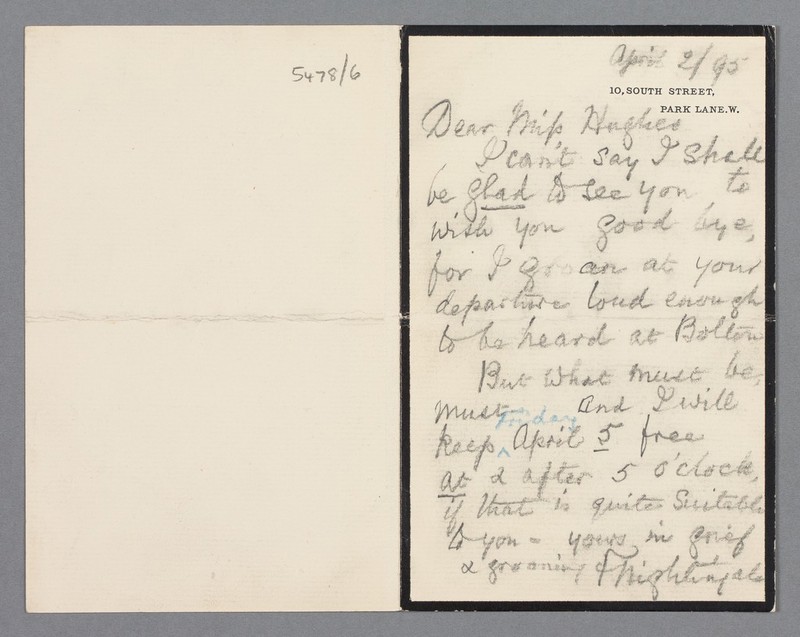 5478/6
April 2/95
10, SOUTH STREET,
PARK LANE. W.
Dear Miss Hughes
I can't say I shall
be glad to see you to
wish you good bye,
for I groan at your
departure loud enough
to be heard at Bolton
But what must be,
must And I will
Friday
keep ^ April 5 free
at & after 5 o'clock,
if that is quite suitable
to you - yours in grief
& groaning F Nightingale